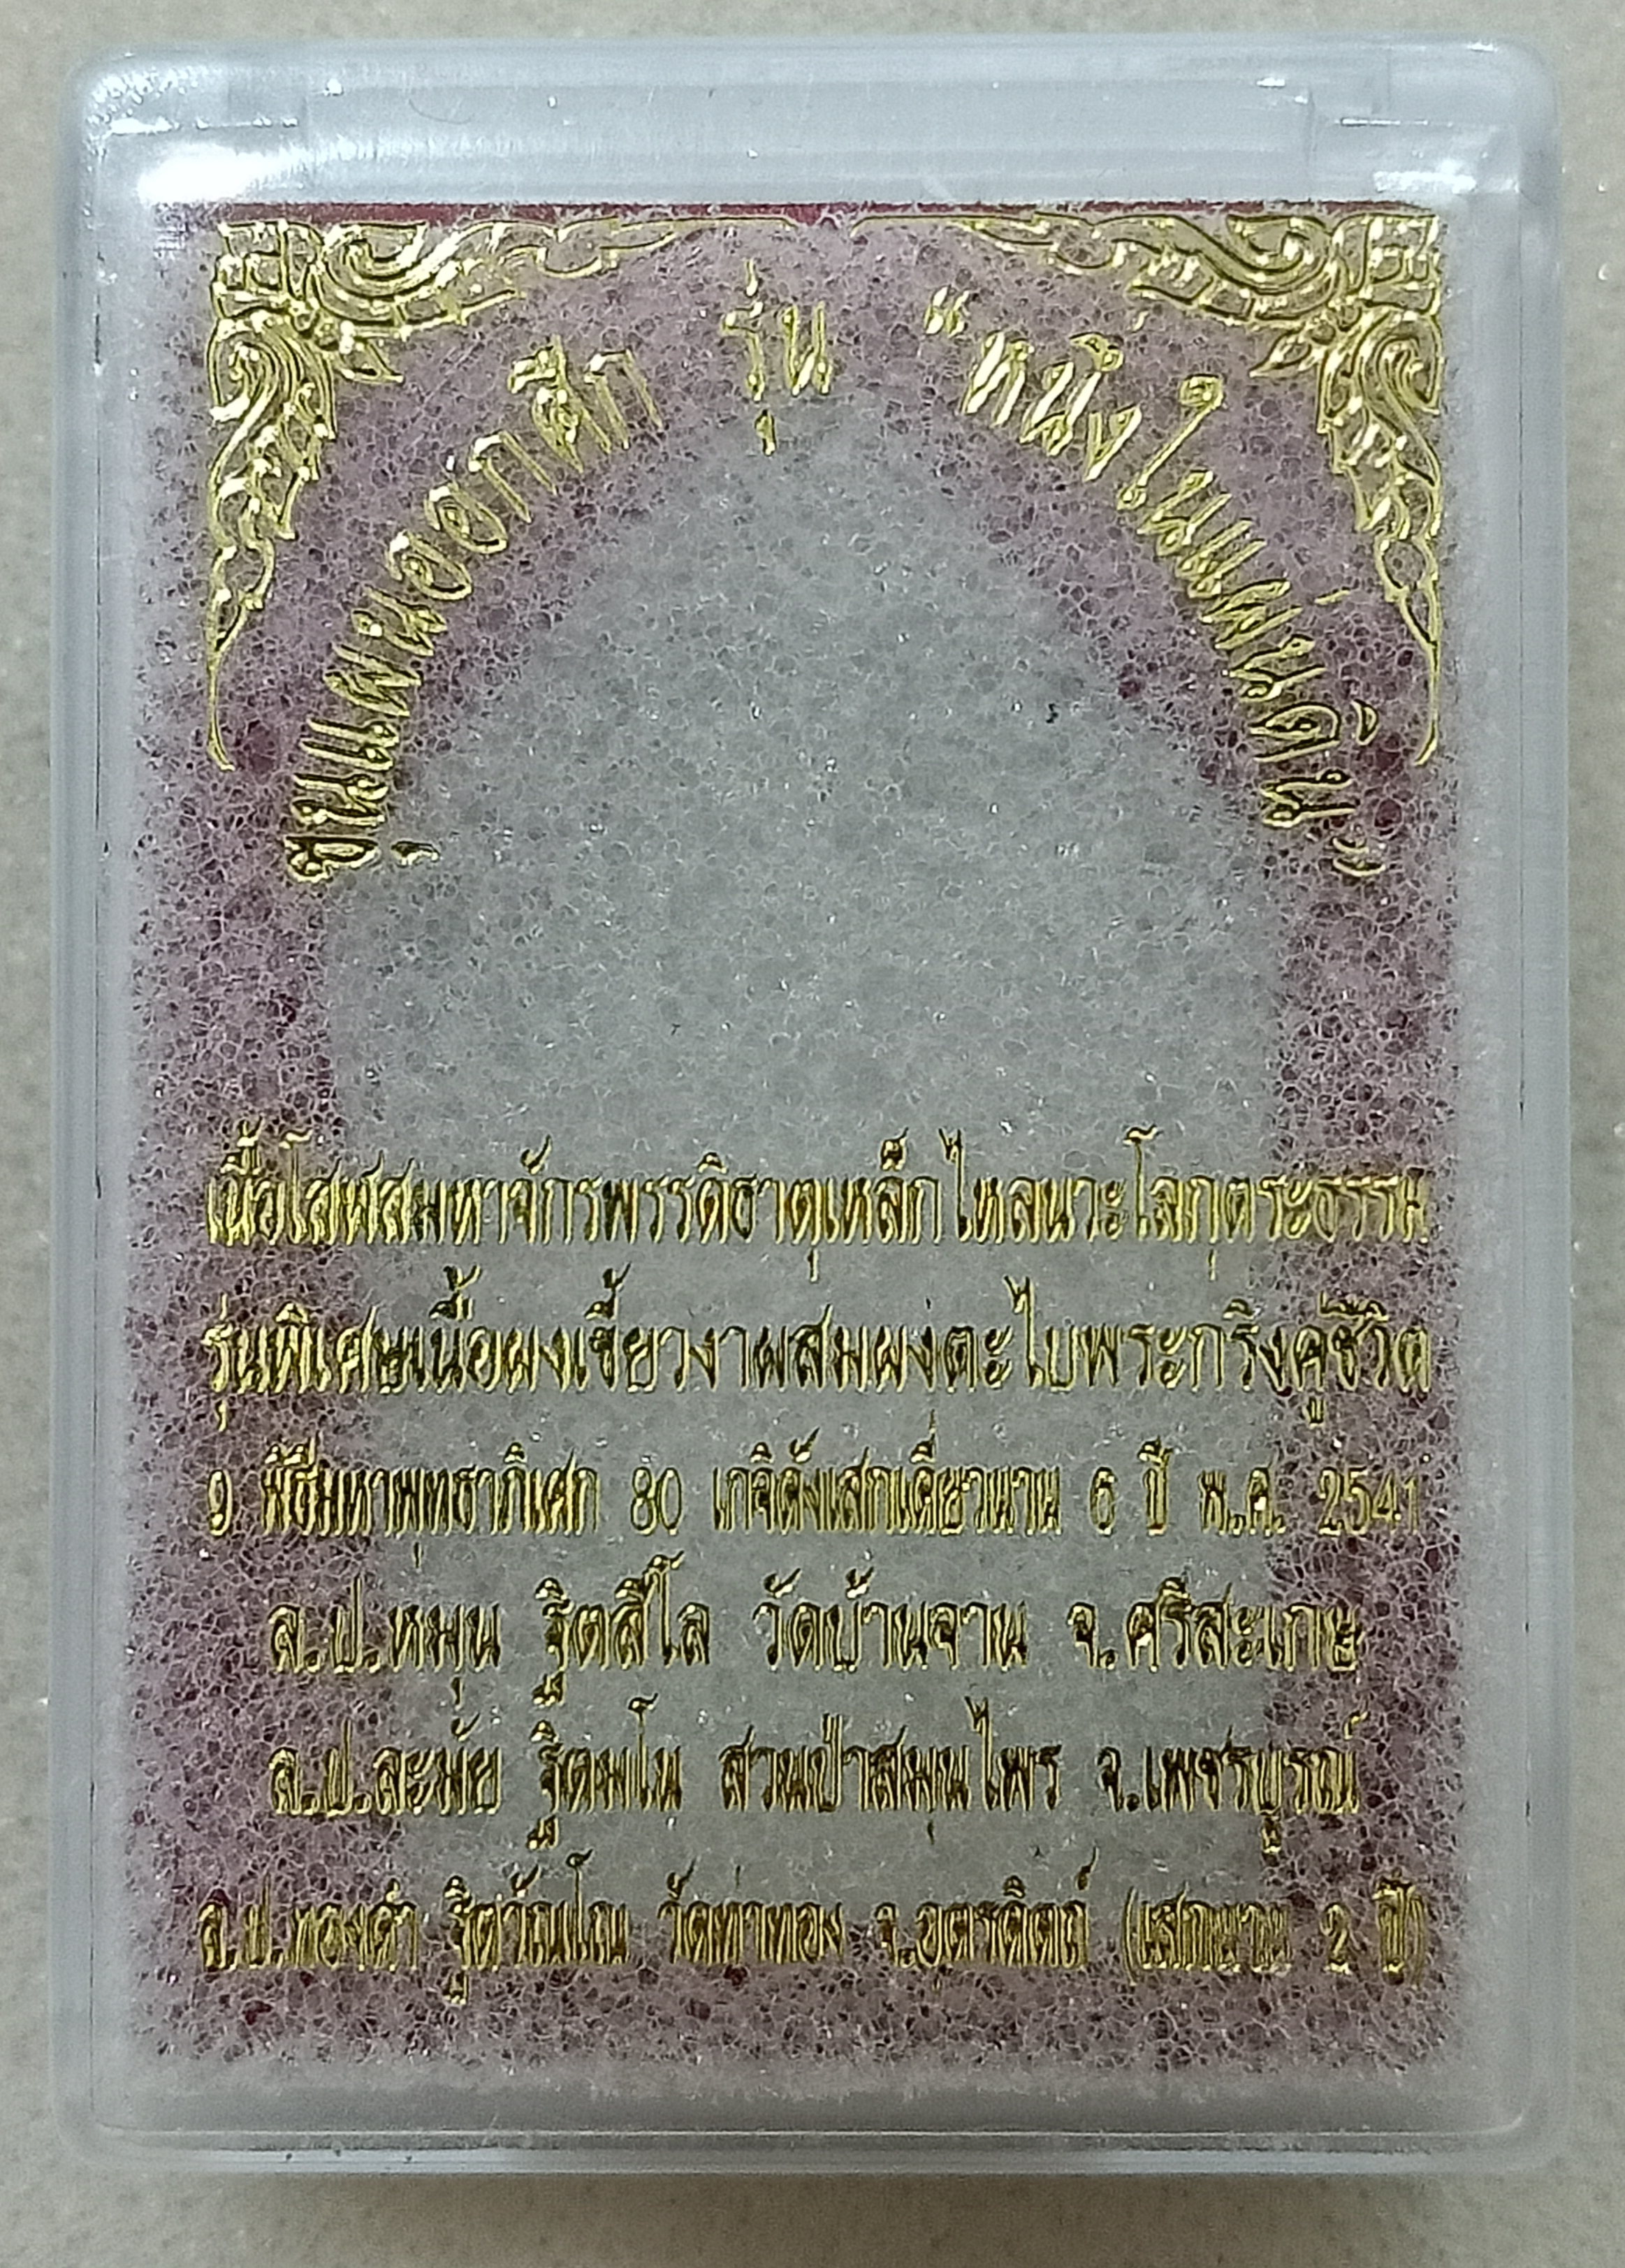 ขุนแผนออกศึก รุ่น “หนึ่งในแผ่นดิน”
เนื้อโสฬสมหาจักรพรรดิธาตุเหล็กไหลนวะโลกุตระธรรม
รุ่นพิเศษเนื้อผงเขี้ยวงาผสมผงตะไบพระกริ่งคู่ชีวิต
9 พิธีมหาพุทธาภิเศก 80 เกจิดังเสกเดี่ยวนาน 6 ปี พ.ศ. 2541
ล.ป.หมุน ฐิตสีโล วัดบ้านจาน จ.ศรีสะเกษ
ล.ป.ละมัย ฐิตมโน สวนป่าสมุนไพร จ.เพชรบูรณ์
ล.ป.ทองดำ ฐิตวัณโณ วัดท่าทอง จ.อุตรดิตถ์ (เสกนาน 2 ปี)